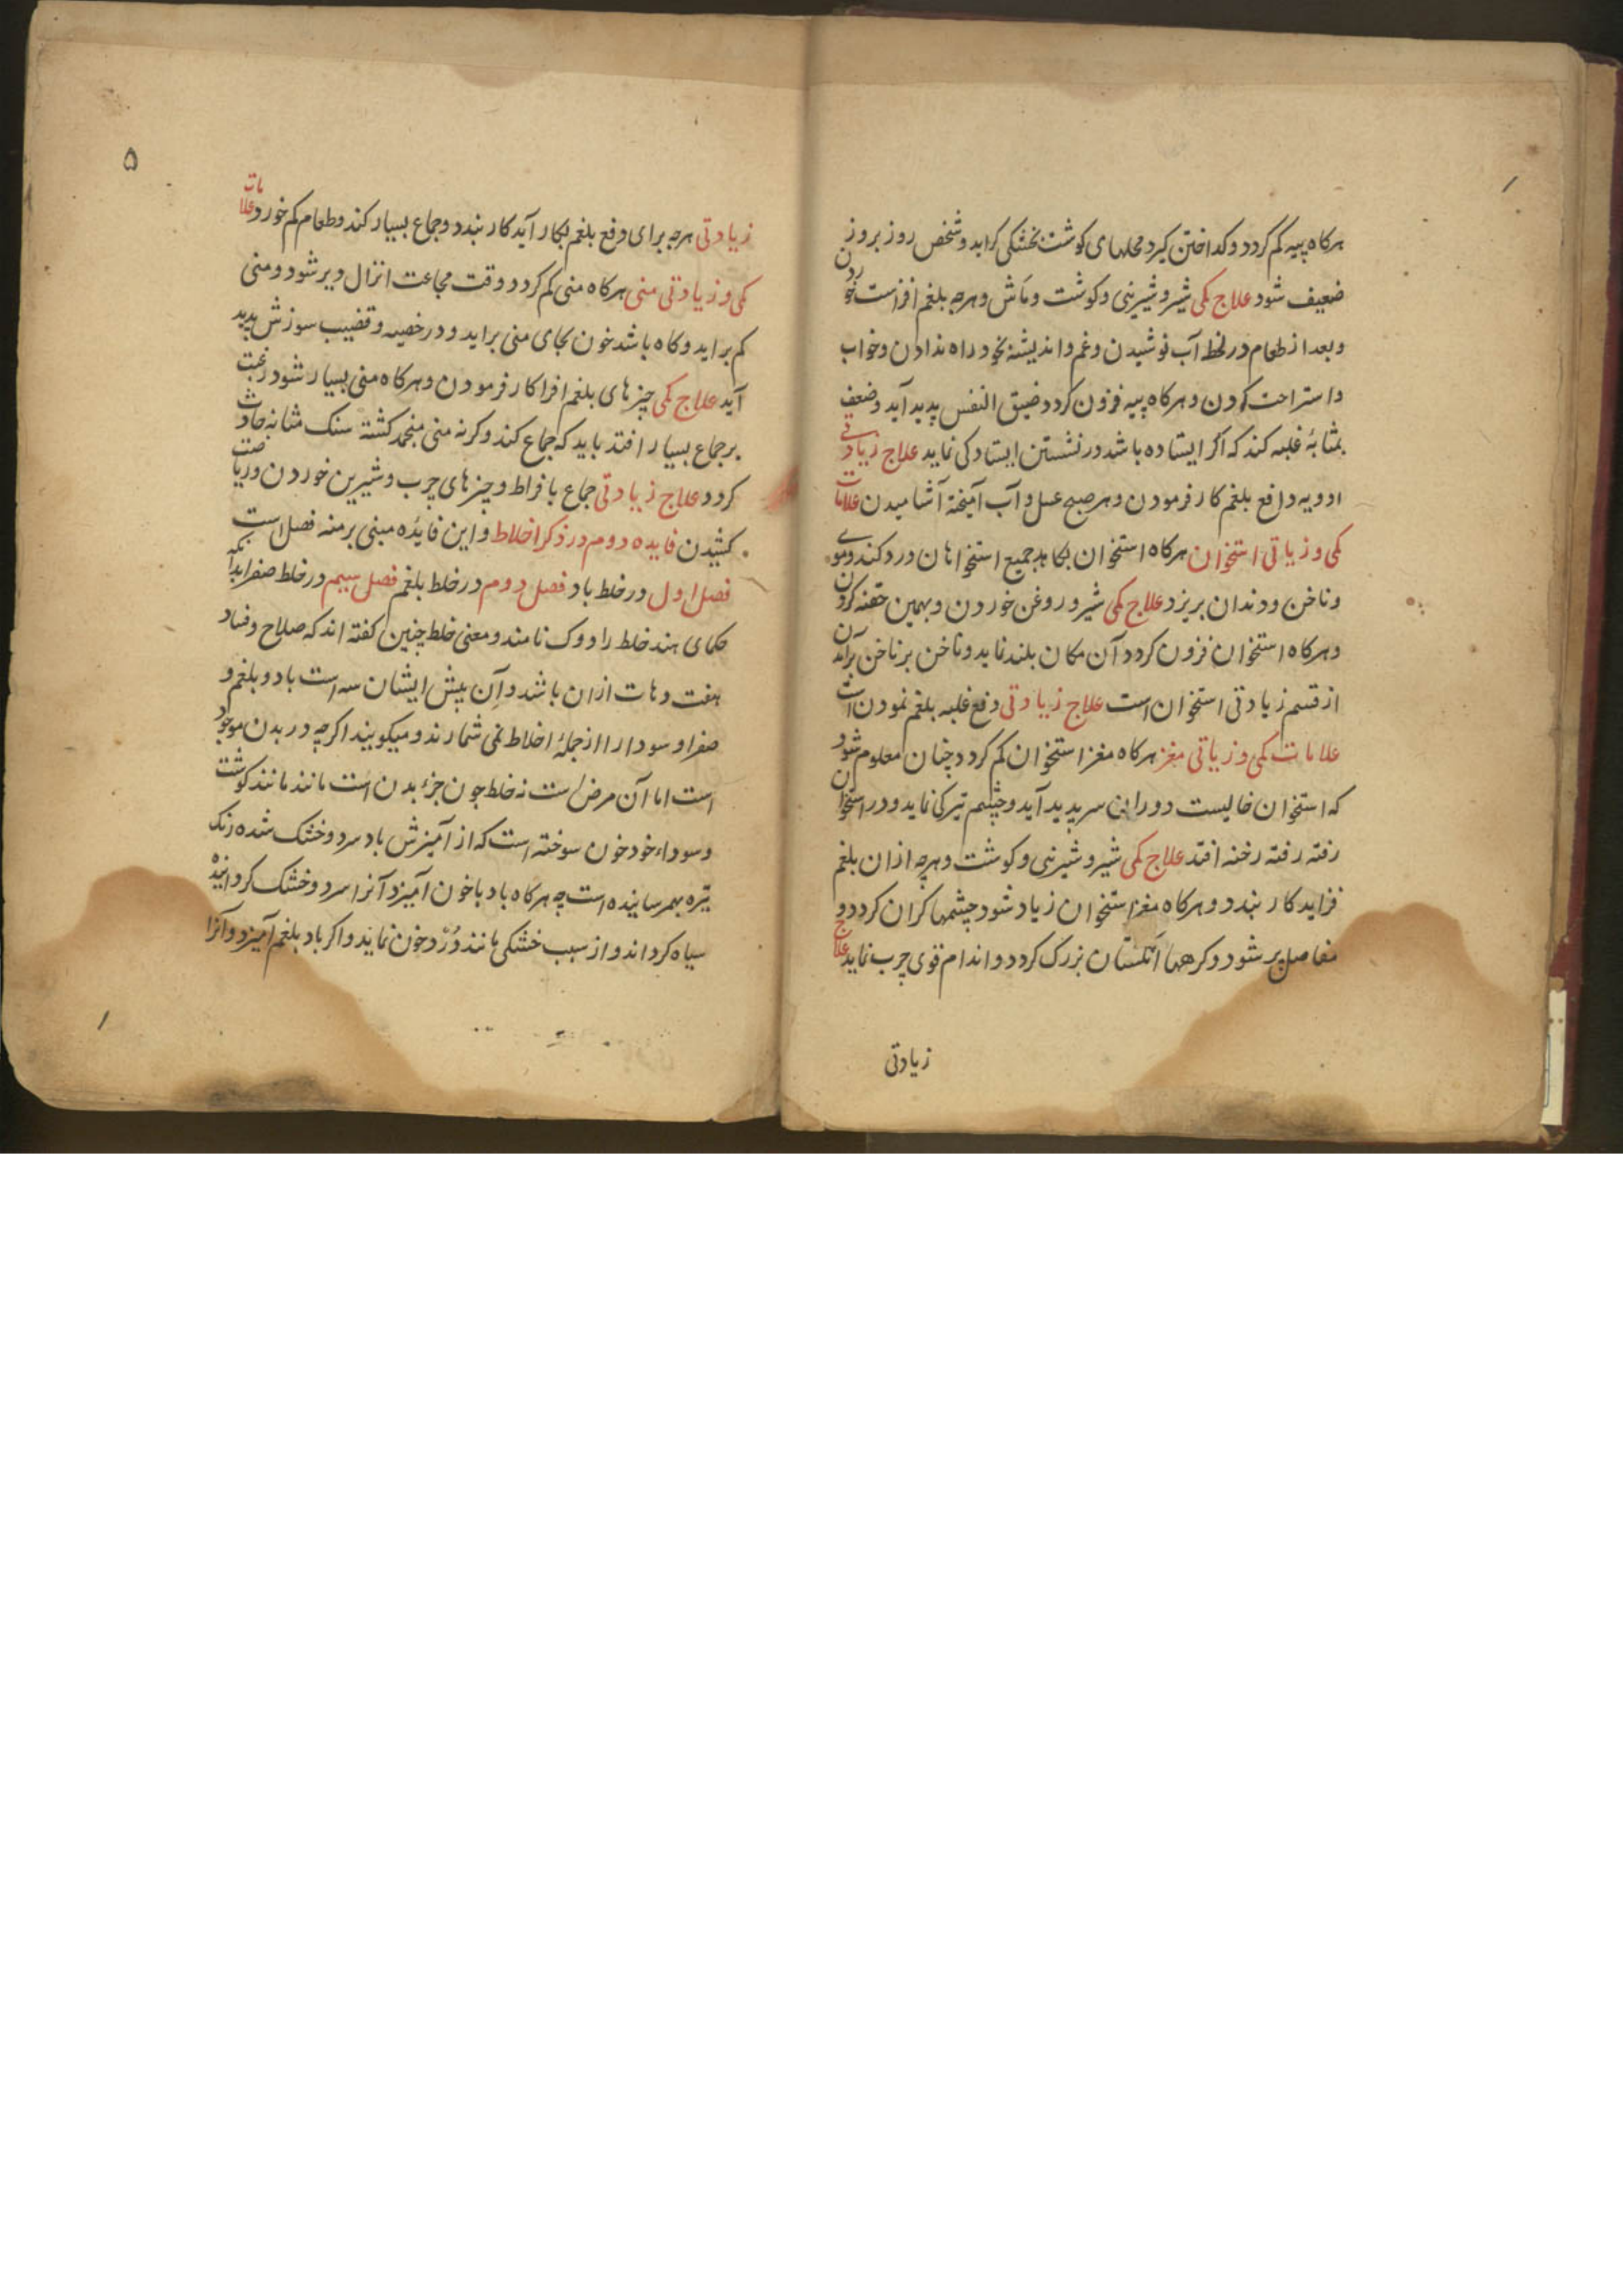 هرکاه پیه کم کردد و کداختن کیرد محلهای کوشت بخشکی کراید و شخص روز بروز
ضعیف شود علاج کمی شیر و شیرینی و کوشت و ماش و هرچه بلغم افزاست خوردن
و بعد از طعام در لحظ آب نوشیدن و غم و اندیشه بخود راه ندادن و خواب
و استراحت کردن و هرکاه پیه فزون کردد ضیق النفس پدید آید و ضعف
بمثابهٔ غلبه کند که اکر ایستاده باشد در نشستن ایستادکی نماید علاج زیادتی
ادویه دافع بلغم کار فرمودن و هر صبح عسل و آب آمیخته آشامیدن علامات
کمی و زیاتی استخوان هرکاه استخوان بکاهد جمیع استخواهان درد کند و موی
و ناخن و دندان بریزد علاج کمی شیر و روغن خوردن و بهمین حقنه کردن
و هرکاه استخوان فزون کردد آن مکان بلند نماید و ناخن بر ناخن برآید آن
از قسم زیادتی استخوان است علاج زیادتی دفع غلبه بلغم نمودن است
علامات کمی و زیاتی مغز هرکاه مغز استخوان کم کردد چنان معلوم شود
که استخوان خالیست دوران سر پدید آید و چشم تیرکی نماید و در استخوان
رفته رفته رخنه افتد علاج کمی شیر و شیرینی و کوشت و هرچه ازان بلغم
فزاید کار بندد و هرکاه مغز استخوان زیاد شود چشمها کران کردد و
مفاصل پر شود و کرهها انکشتان بزرک کردد و اندام قوی چرب نماید علاج
زیادتی
۵
زیادتی هرچه برای دفع بلغم بکار آید کار بندد و جماع بسیار کند و طعام کم خورد علامات
کمی و زیادتی منی هرکاه منی کم کردد وقت مجاعت انزال دیر شود و منی
کم براید و کاه باشد خون بجای منی براید و در خصیه و قضیب سوزش پدید
آید علاج کمی چیزهای بلغم افزا کار فرمودن و هرکاه منی بسیار شود رغبت
بر جماع بسیار افتد باید که جماع کند وکرنه منی منجمد کشته سنک مثانه حادث
کردد علاج زیادتی جماع بافراط و چیزهای چرب و شیرین خوردن و ریاضت
کشیدن فایده دوم در ذکر اخلاط و این فایده مبنی بر سه فصل است
فصل اول در خلط باد فصل دوم در خلط بلغم فصل سیم در خلط صفرا بدآنکه
حکمای هند خلط را دوک نامند و معنی خلط چنین کفته اند که صلاح و فساد
هفت دهات ازان باشد و آن پیش ایشان سه است باد و بلغم و
صفرا و سودا را از جملهٔ اخلاط نمی شمارند و میکویند اکرچه در بدن موجود
است اما آن مرض است نه خلط چون جزء بدن است مانند مانند کوشت
و سوداء خود خون سوخته است که از آمیزش باد سرد و خشک شده رنک
تیره بهمرسانیده است چه هرکاه باد با خون آمیزد آنرا سرد و خشک کردانیده
سیاه کرداند و از سبب خشکی مانند دُرد خون نماید و اکر باد بلغم آمیزد و آنرا